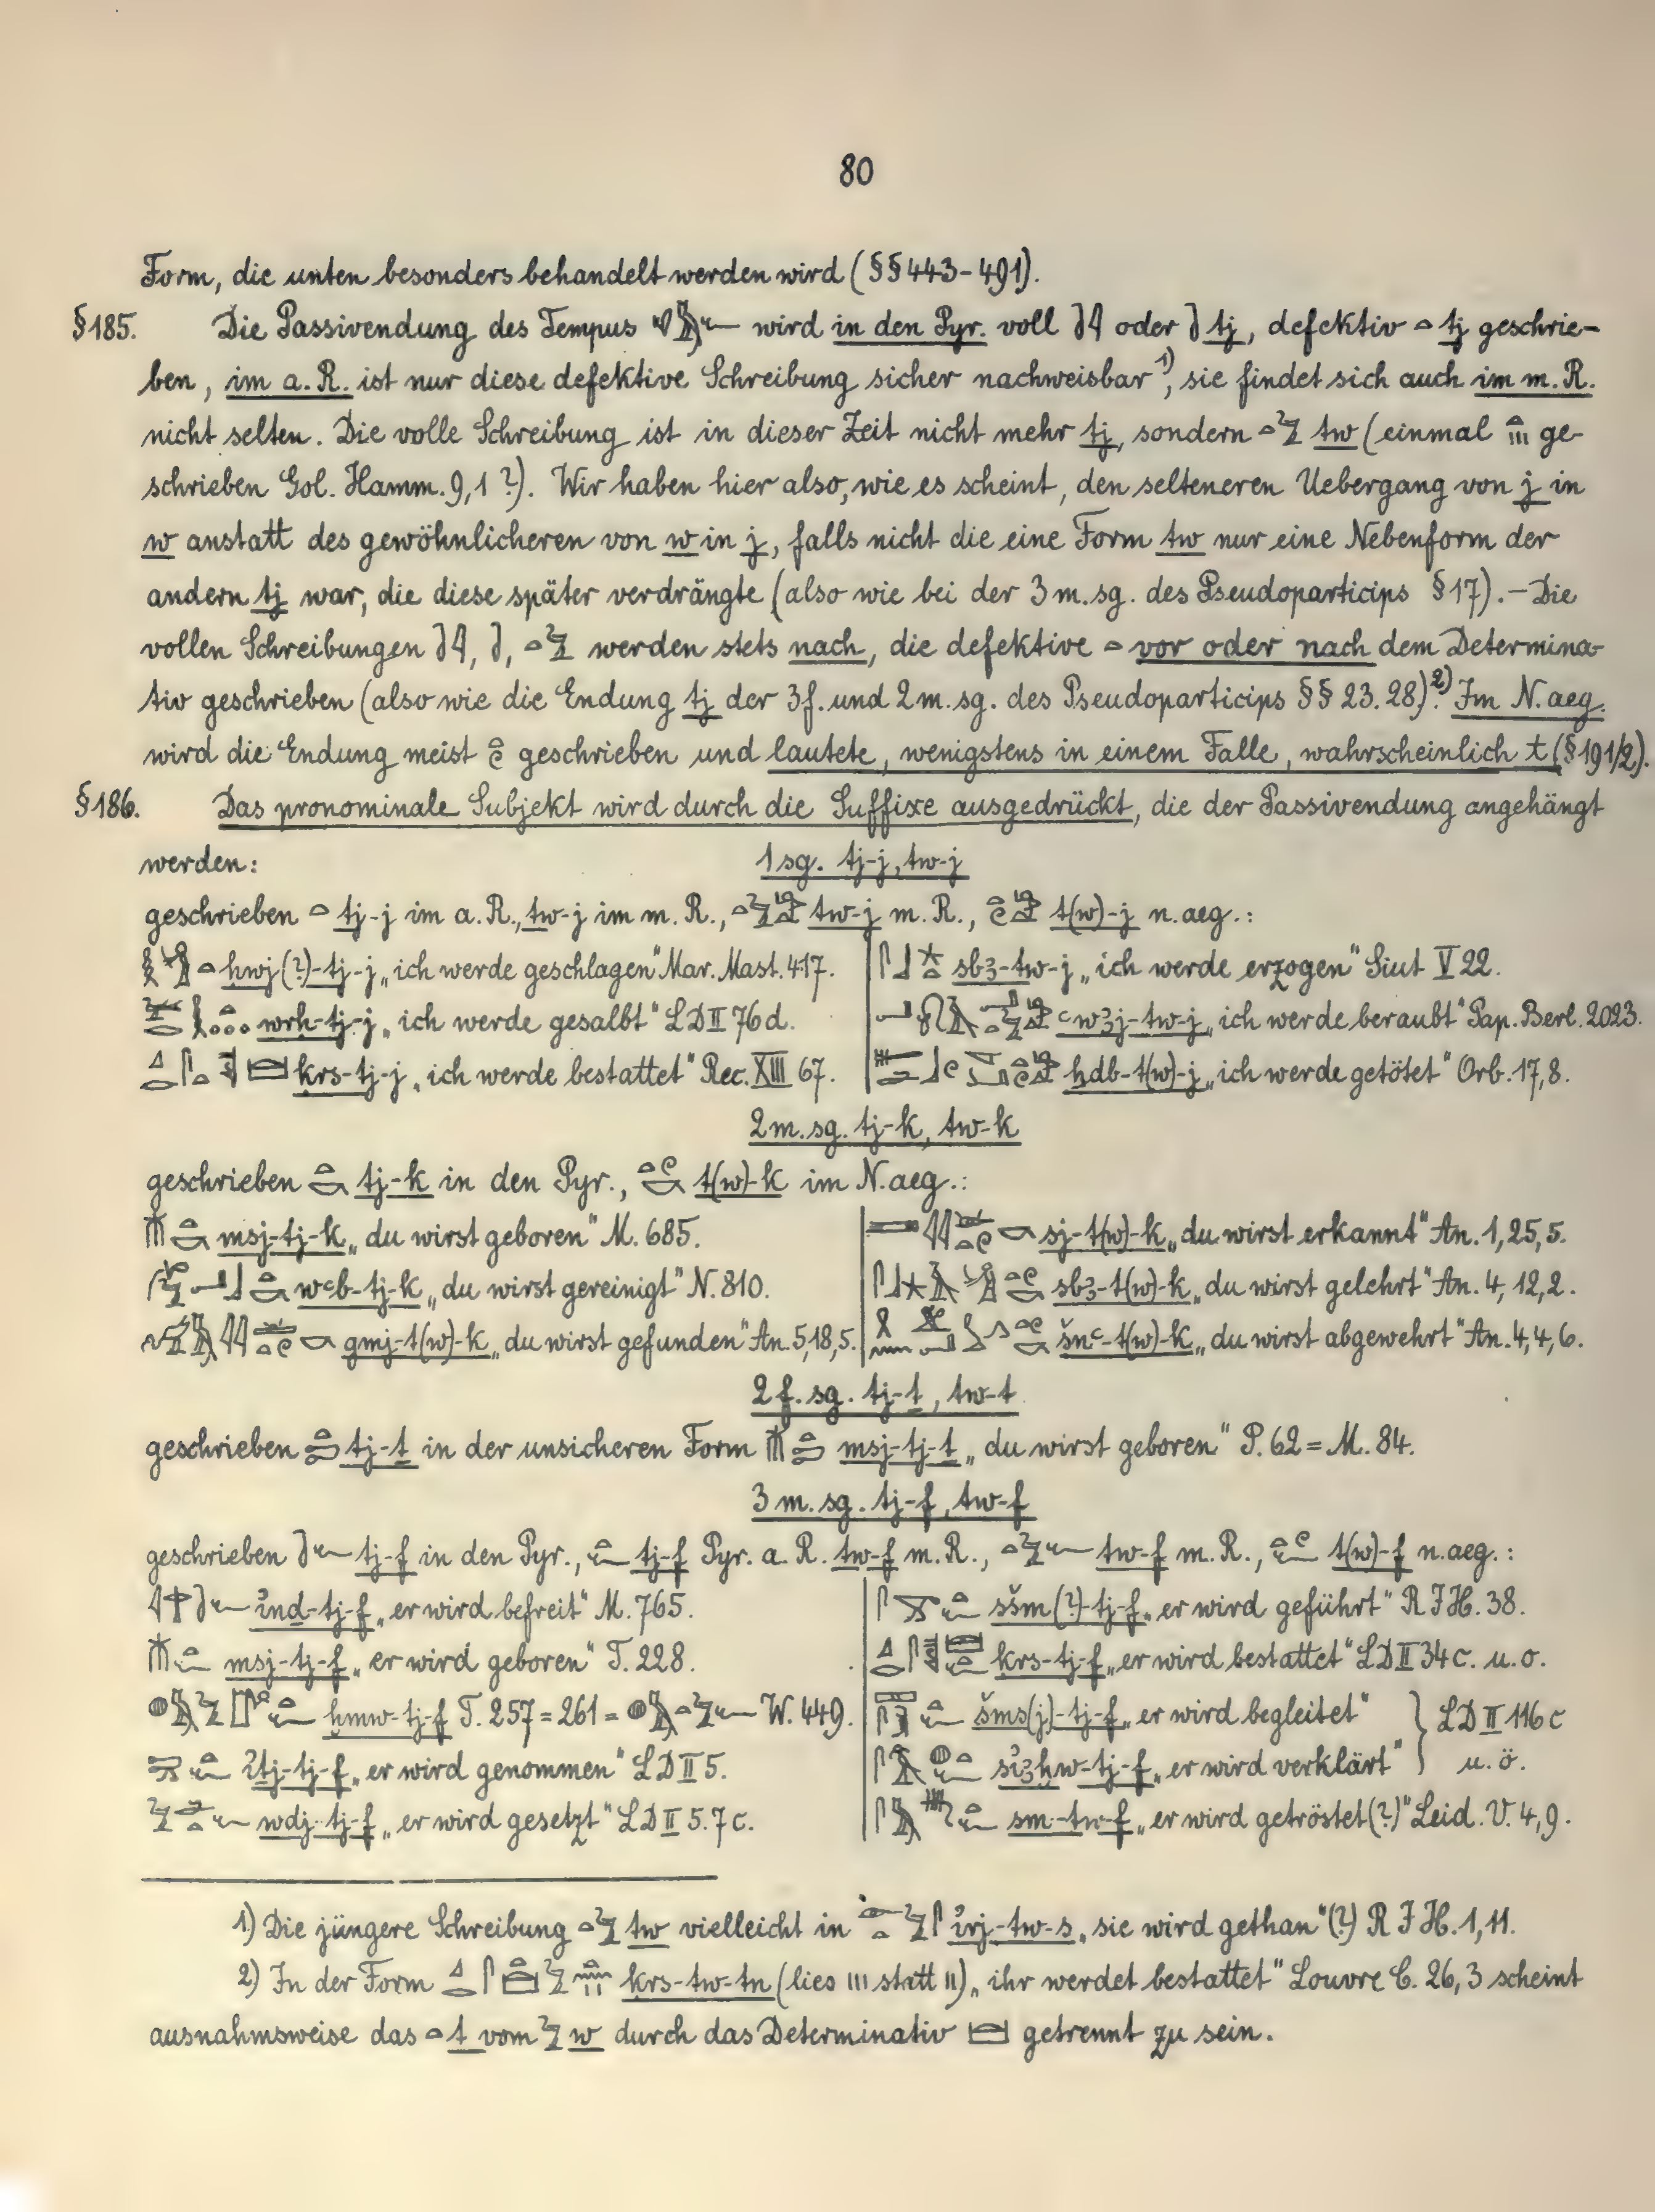 80
Form, die unten besonders behandelt werden wird (§§ 443-491).
§185. Die Passivendung des Tempus wird in den Pyr. voll oder tj, defektiv tj geschrie-
ben, im a. R. ist nur diese defektive Schreibung sicher nachweisbar 1), sie findet sich auch im m. R.
nicht selten. Die volle Schreibung ist in dieser Zeit nicht mehr tj, sondern tw (einmal ge-
schrieben Gol. Hamm. 9,1 ?). Wir haben hier also, wie es scheint, den selteneren Uebergang von j in
w anstatt des gewöhnlicheren von w in j, falls nicht die eine Form tw nur eine Nebenform der
andern tj war, die diese später verdrängte (also wie bei der 3 m. sg. des Pseudoparticips § 17). – Die
vollen Schreibungen , , werden stets nach, die defektive vor oder nach dem Determina-
tiv geschrieben (also wie die Endung tj der 3 f. und 2 m. sg. des Pseudoparticips §§ 23. 28). 2) Im N. aeg.
wird die Endung meist geschrieben und lautete, wenigstens in einem Falle, wahrscheinlich t (§ 191/2).
§186. Das pronominale Subjekt wird durch die Suffixe ausgedrückt, die der Passivendung angehängt
werden: 1 sg. tj-j, tw-j
geschrieben tj-j im a. R., tw-j im m. R., tw-j m. R., t(w)-j n. aeg.:
ḥwj(?)-tj-j „ich werde geschlagen“ Mar. Mast. 417. sbꜣ-tw-j „ich werde erzogen“ Siut V 22.
wrḥ-tj-j „ich werde gesalbt“ LD II 76 d. ꜥwꜣj-tw-j „ich werde beraubt“ Pap. Berl. 2023.
ḳrs-tj-j „ich werde bestattet“ Rec. XIII 67. ḫdb-t(w)-j „ich werde getötet“ Orb. 17,8.
2 m. sg. tj-k, tw-k
geschrieben tj-k in den Pyr., t(w)-k im N. aeg.:
msj-tj-k „du wirst geboren“ M. 685. sj-t(w)-k „du wirst erkannt“ An. 1, 25, 5.
wꜥb-tj-k „du wirst gereinigt“ N. 810. sbꜣ-t(w)-k „du wirst gelehrt“ An. 4, 12, 2.
gmj-t(w)-k „du wirst gefunden“ An. 5, 18, 5. šnꜥ-t(w)-k „du wirst abgewehrt“ An. 4, 4, 6.
2 f. sg. tj-ṯ, tw-ṯ
geschrieben tj-ṯ in der unsicheren Form msj-tj-ṯ „du wirst geboren“ P. 62 = M. 84.
3 m. sg. tj-f, tw-f
geschrieben tj-f in den Pyr., tj-f Pyr. a. R. tw-f m. R., tw-f m. R., t(w)-f n. aeg.:
ỉnd-tj-f „er wird befreit“ M. 765. sšm(?)-tj-f „er wird geführt“ R I H. 38.
msj-tj-f „er wird geboren“ T. 228. ḳrs-tj-f „er wird bestattet“ LD II 34 c. u. o.
ḫmw-tj-f T. 257 = 261 = W. 449. šms(j)-tj-f „er wird begleitet“ } LD II 116 c
ỉṯj-tj-f „er wird genommen“ LD II 5. sỉꜣḫw-tj-f „er wird verklärt“ } u. ö.
wdj-tj-f „er wird gesetzt“ LD II 5. 7 c. sm-tw-f „er wird getröstet(?)“ Leid. V. 4, 9.
1) Die jüngere Schreibung tw vielleicht in ỉrj-tw-s „sie wird gethan“ (?) R I H. 1, 11.
2) In der Form ḳrs-tw-tn (lies III statt II) „ihr werdet bestattet“ Louvre C. 26, 3 scheint
ausnahmsweise das t vom w durch das Determinativ getrennt zu sein.